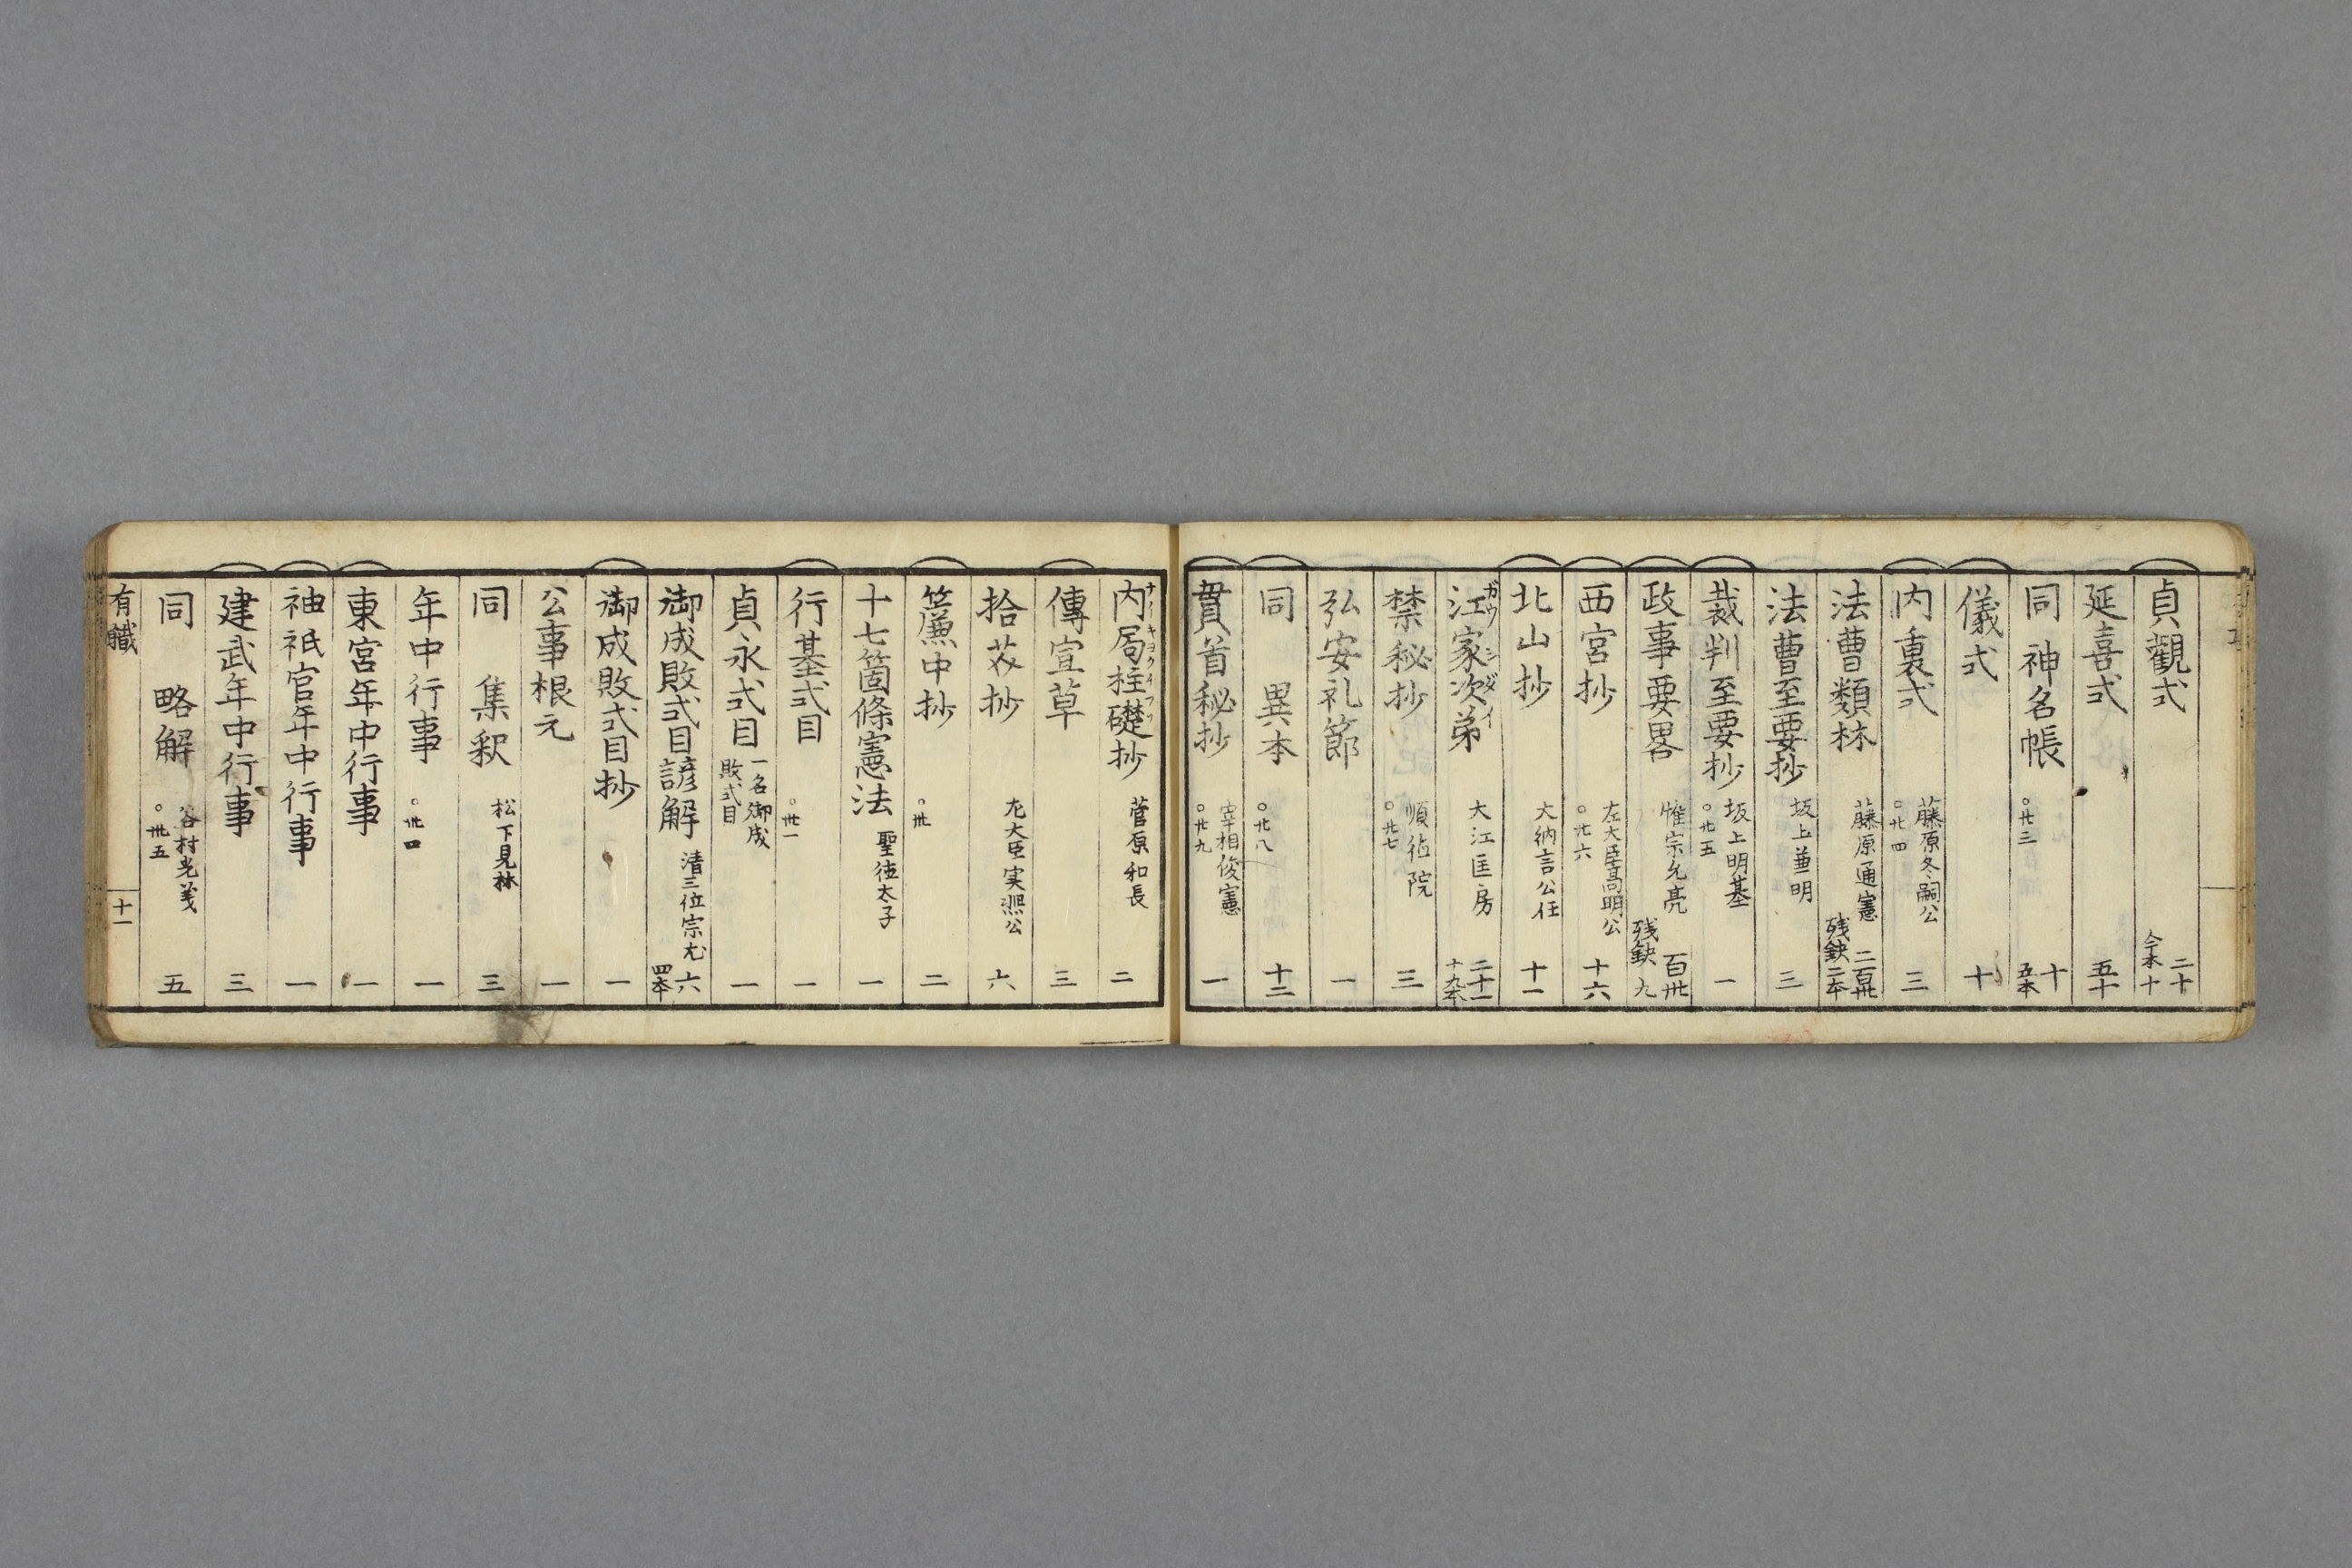 貞觀式 二十 今本十
延喜式 五十
同 神名帳 ○廿三 十 五本
儀式 十
内裏式 藤原冬嗣公 ○廿四 三
法曹類林 藤原通憲 残缺 二百卅 二本
法曹至要抄 坂上兼明 三
裁判至要抄 坂上明基 ○廿五 一
政事要畧 惟宗允亮 残缺 百卅 九
西宮抄 左大臣高明公 ○廿六 十六
北山抄 大納言公任 十一
江家次弟 ガウ シダイ 大江匡房 二十一 十九本
禁秘抄 順徳院 ○廿七 三
弘安礼節 一
同 異本 ○廿八 十二
貫首秘抄 宰相俊憲 ○廿九 一
内局柱礎抄 菅原和長 二
傳宣草 三
拾芥抄 左大臣実凞公 六
簾中抄 ○卅 二
十七箇條憲法 聖徳太子 一
行基式目 ○卅一 一
貞永式目 一名御成敗式目 一
御成敗式目諺解 清三位宗尤 六 四本
御成敗式目抄 一
公事根元 一
同 集釈 松下見林 三
年中行事 ○卅四 一
東宮年中行事 一
神祇官年中行事 一
建武年中行事 三
同 略解 谷村光義 ○卅五 五
有職 十一